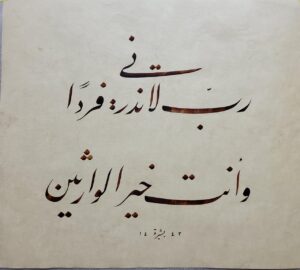 ربّ لا تذرني فردًا
وأنت خير الوارثين
٤٢ بشيرة ١٤